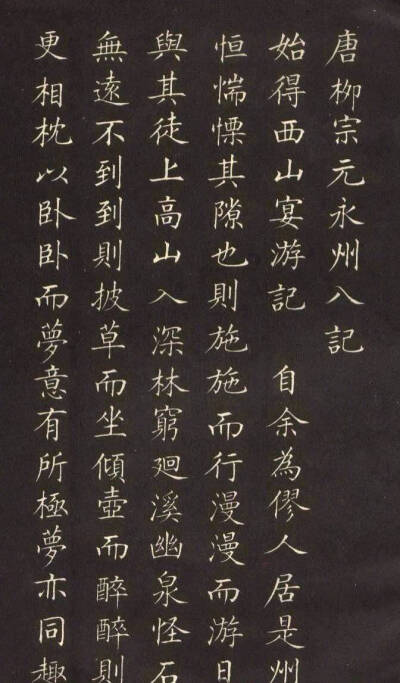 唐柳宗元永州八記
始得西山宴游記 自余為僇人居是州
恒惴慄其隙也則施施而行漫漫而游日
與其徒上高山入深林窮迴溪幽泉怪石
無遠不到到則披草而坐傾壺而醉醉則
更相枕以卧卧而夢意有所極夢亦同趣